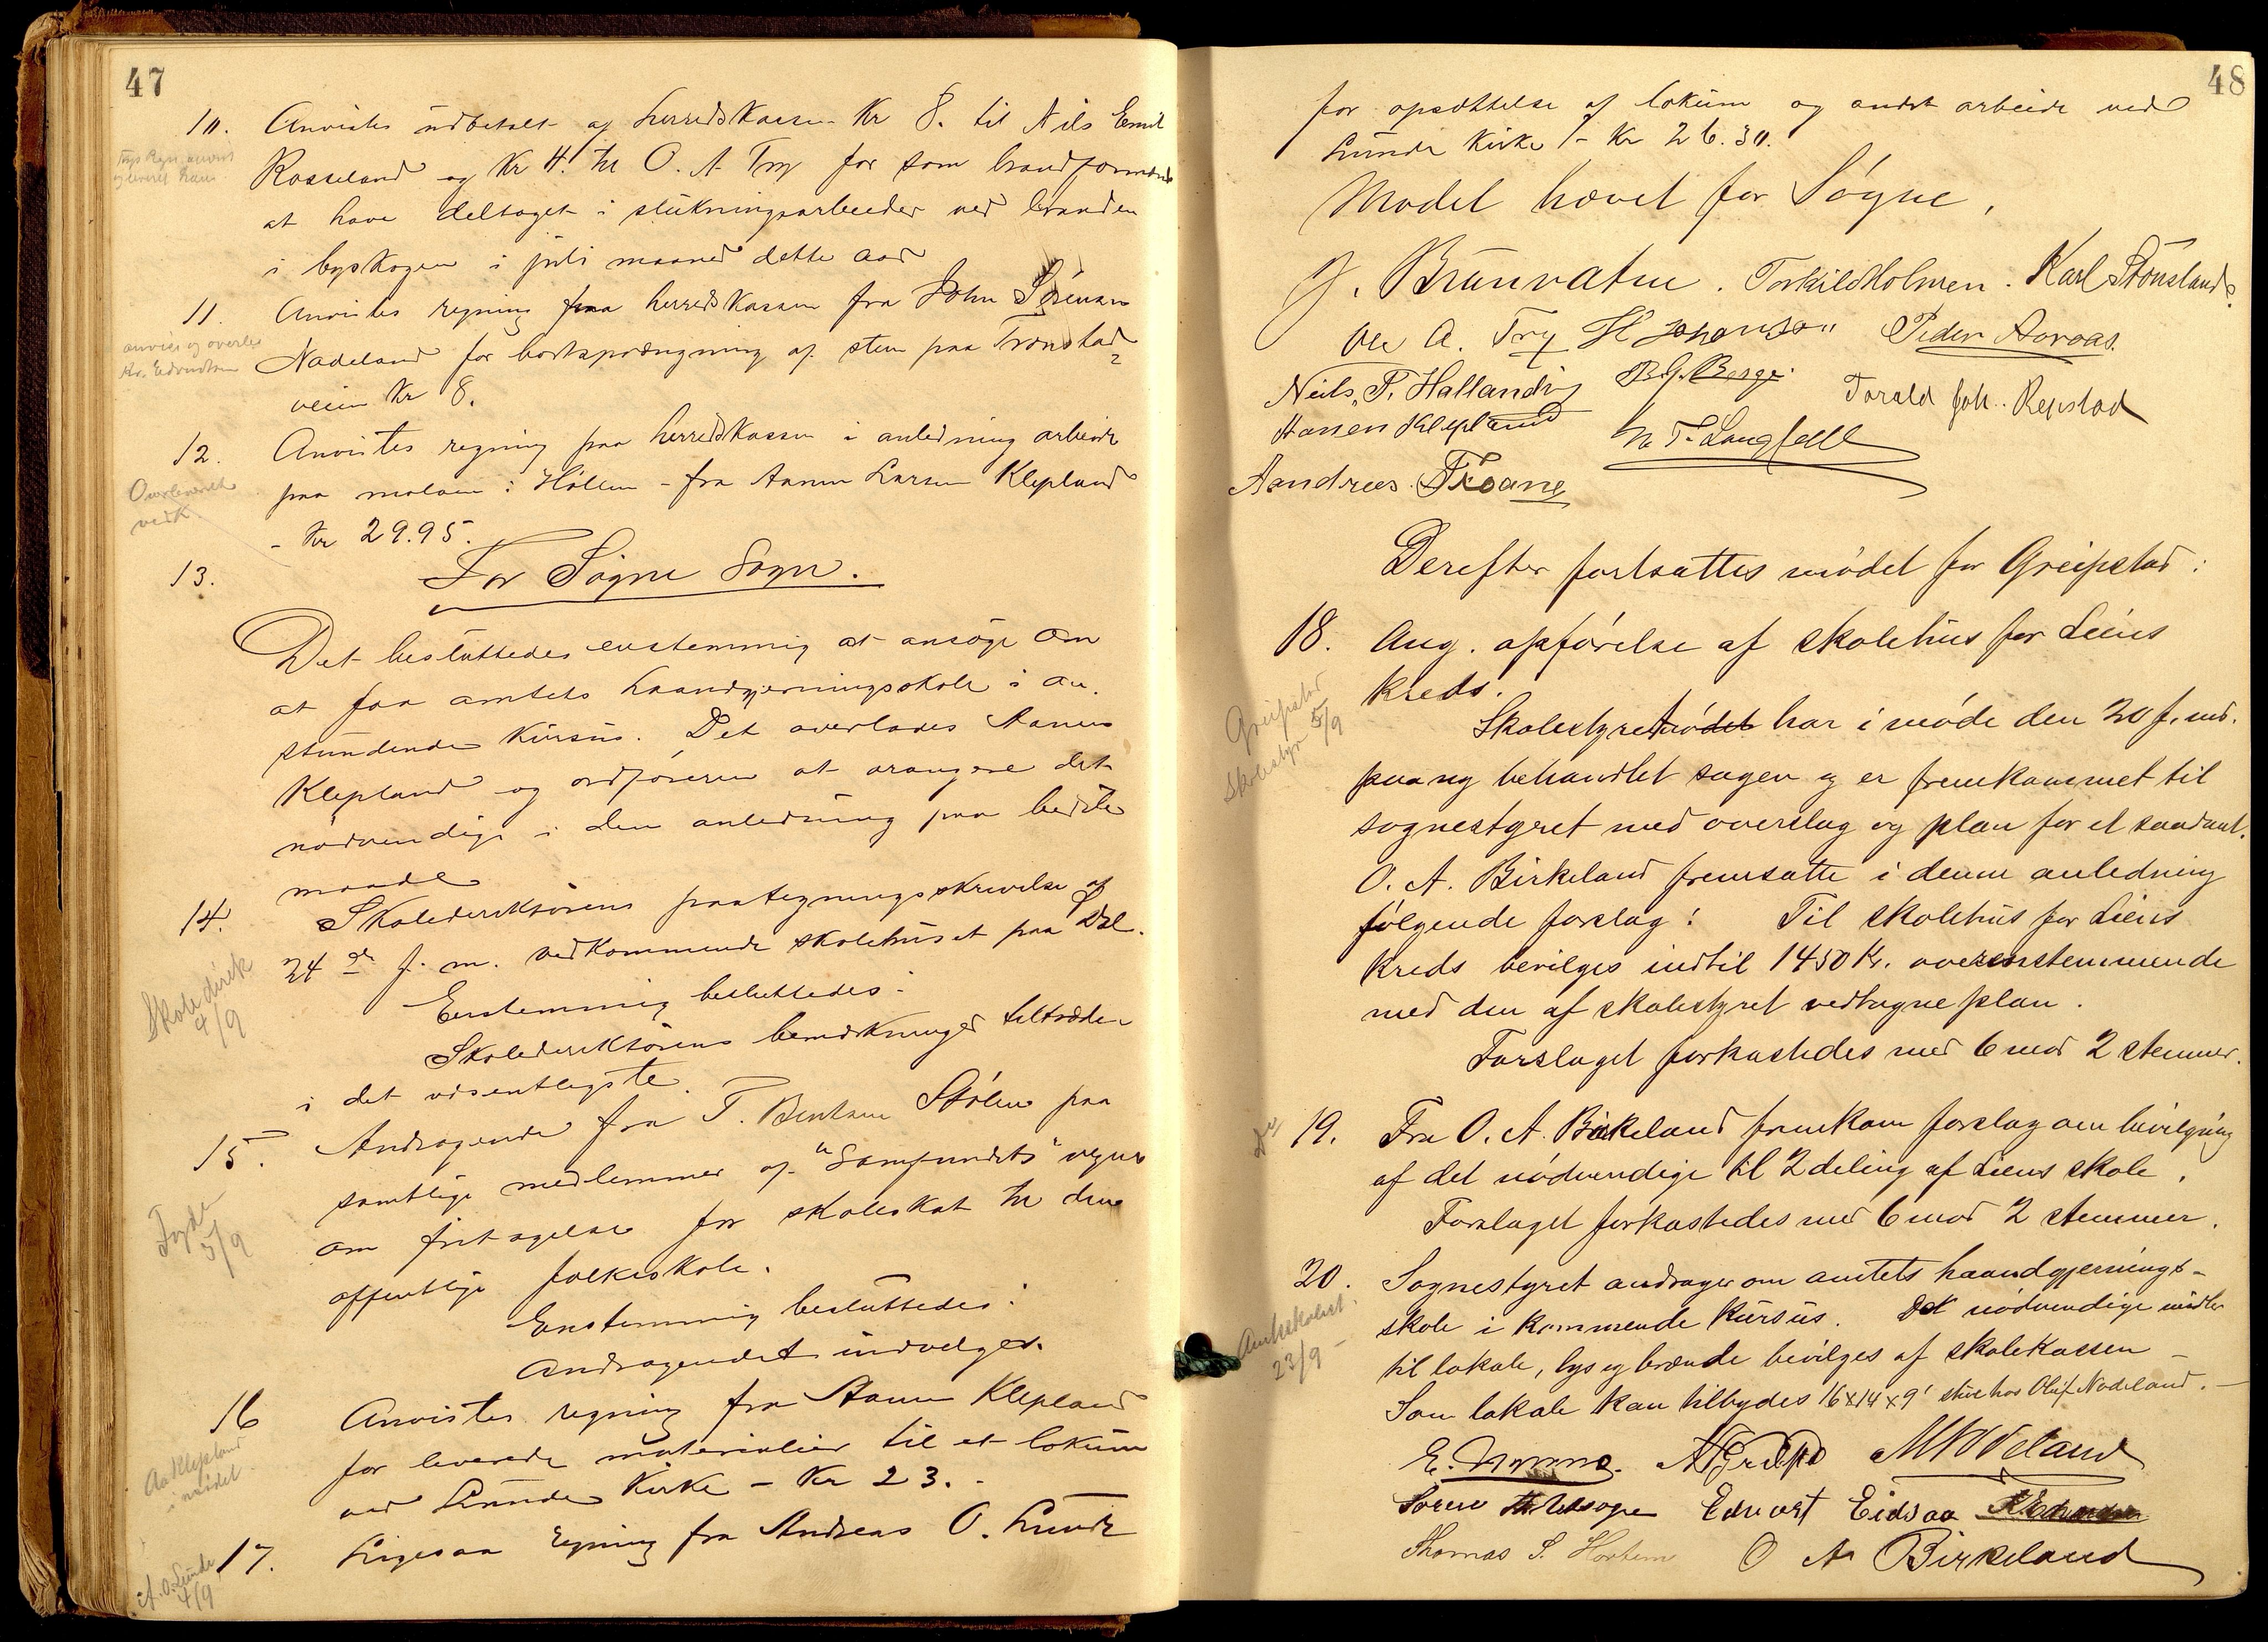 47
10. Anvistes udbetalt af herredskassen Kr 8. til Nils Emil
Rosseland og Kr 4. til O. A. Try for som brandformænd
at have deltaget i slukningsarbeider ved branden
i byskogen i juli maaned dette aar
11. Anvistes regning paa herredskassen fra John Sørensen
Nodeland for bortsprængning af sten paa Tronstad
veien Kr 8.
anvist og overlev
12. Anvistes regning paa herredskassen i anledning arbeide
paa moloen i Höllen - fra Aanen Larsen Klepland
- Kr 29.95.
Overleveret
vedk.
13. For Søgne Sogn.
Det besluttedes enstemmig at ansøge om
at faa amtets haandgjerningsskole i an-
stundende Kursus. Det overlades Aanen
Klepland og ordføreren at arangere det
nødvendige i den anledning paa bedste
maade
14. Skoledirektörens paategningsskrivelse af
24de f. m. vedkommende skolehuset paa Döl.
Enstemmig besluttedes:
Skoledirektörens bemærkninger tiltrædes
i det væsentligste.
Skoledirek
4/9
15. Andragende fra T. Bentsen Stölen paa
samtlige medlemmer af "Samfundets" vegne
om fritagelse for skoleskat til den
offentlige folkeskole.
Enstemmig besluttedes:
Andragendet indvilges.
5/9
16 Anvistes regning fra Aanen Klepland
for leverede materialier til et lokum
ved Lunde Kirke - Kr 23. -
Aa Klepland
i mödet
17. Ligesaa regning fra Andreas O. Lunde
A. O. Lunde
4/9
48
for opsættelse af lokum og andet arbeide ved
Lunde Kirke - Kr 26.30.
Mødet hævet for Søgne,
J. Brunvatne. Torkild Holmen. Karl Stömsland.
Ole A. Try H Johansen Peder Aaraas.
Neils. P. Hallandvig B. J. Berge. Torald Joh. Repstad
Aanen Klepland N T. Langfeldt
Aandreas. Froane
Derefter fortsattes mödet for Greipstad:
18. Ang. opförelse af skolehus for Liens
Kreds.
Skolestyret har i möde den 20 f. md.
paa ny behandlet sagen og er fremkommet til
sognestyret med overslag og plan for et saadant.
O. A. Birkeland fremsatte i denne anledning
fölgende forslag: Til skolehus for Liens
Kreds bevilges indtil 1450 Kr. overensstemmende
med den af skolestyret vedtagne plan.
Forslaget forkastedes med 6 mod 2 stemmer.
Greipstad
Skolestyr 5/9
19. Fra O. A. Birkeland fremkom forslag om bevilgning
af det nödvendige til 2 deling af Liens skole.
Forslaget forkastedes med 6 mod 2 stemmer.
Do
20. Sognestyret andrager om amtets haandgjernings-
skole i kommende Kursus. Det nödvendige midler
til lokale, lys og brænde bevilges af skolekassen -
Som lokale kan tilbydes 16x14x9' stue hos Oluf Nodeland. -
Amtsskolest.
23/9
E. A Greipsd Veland
Sören Edvart Eidsaa
Thomas S. Hortem O A Birkeland